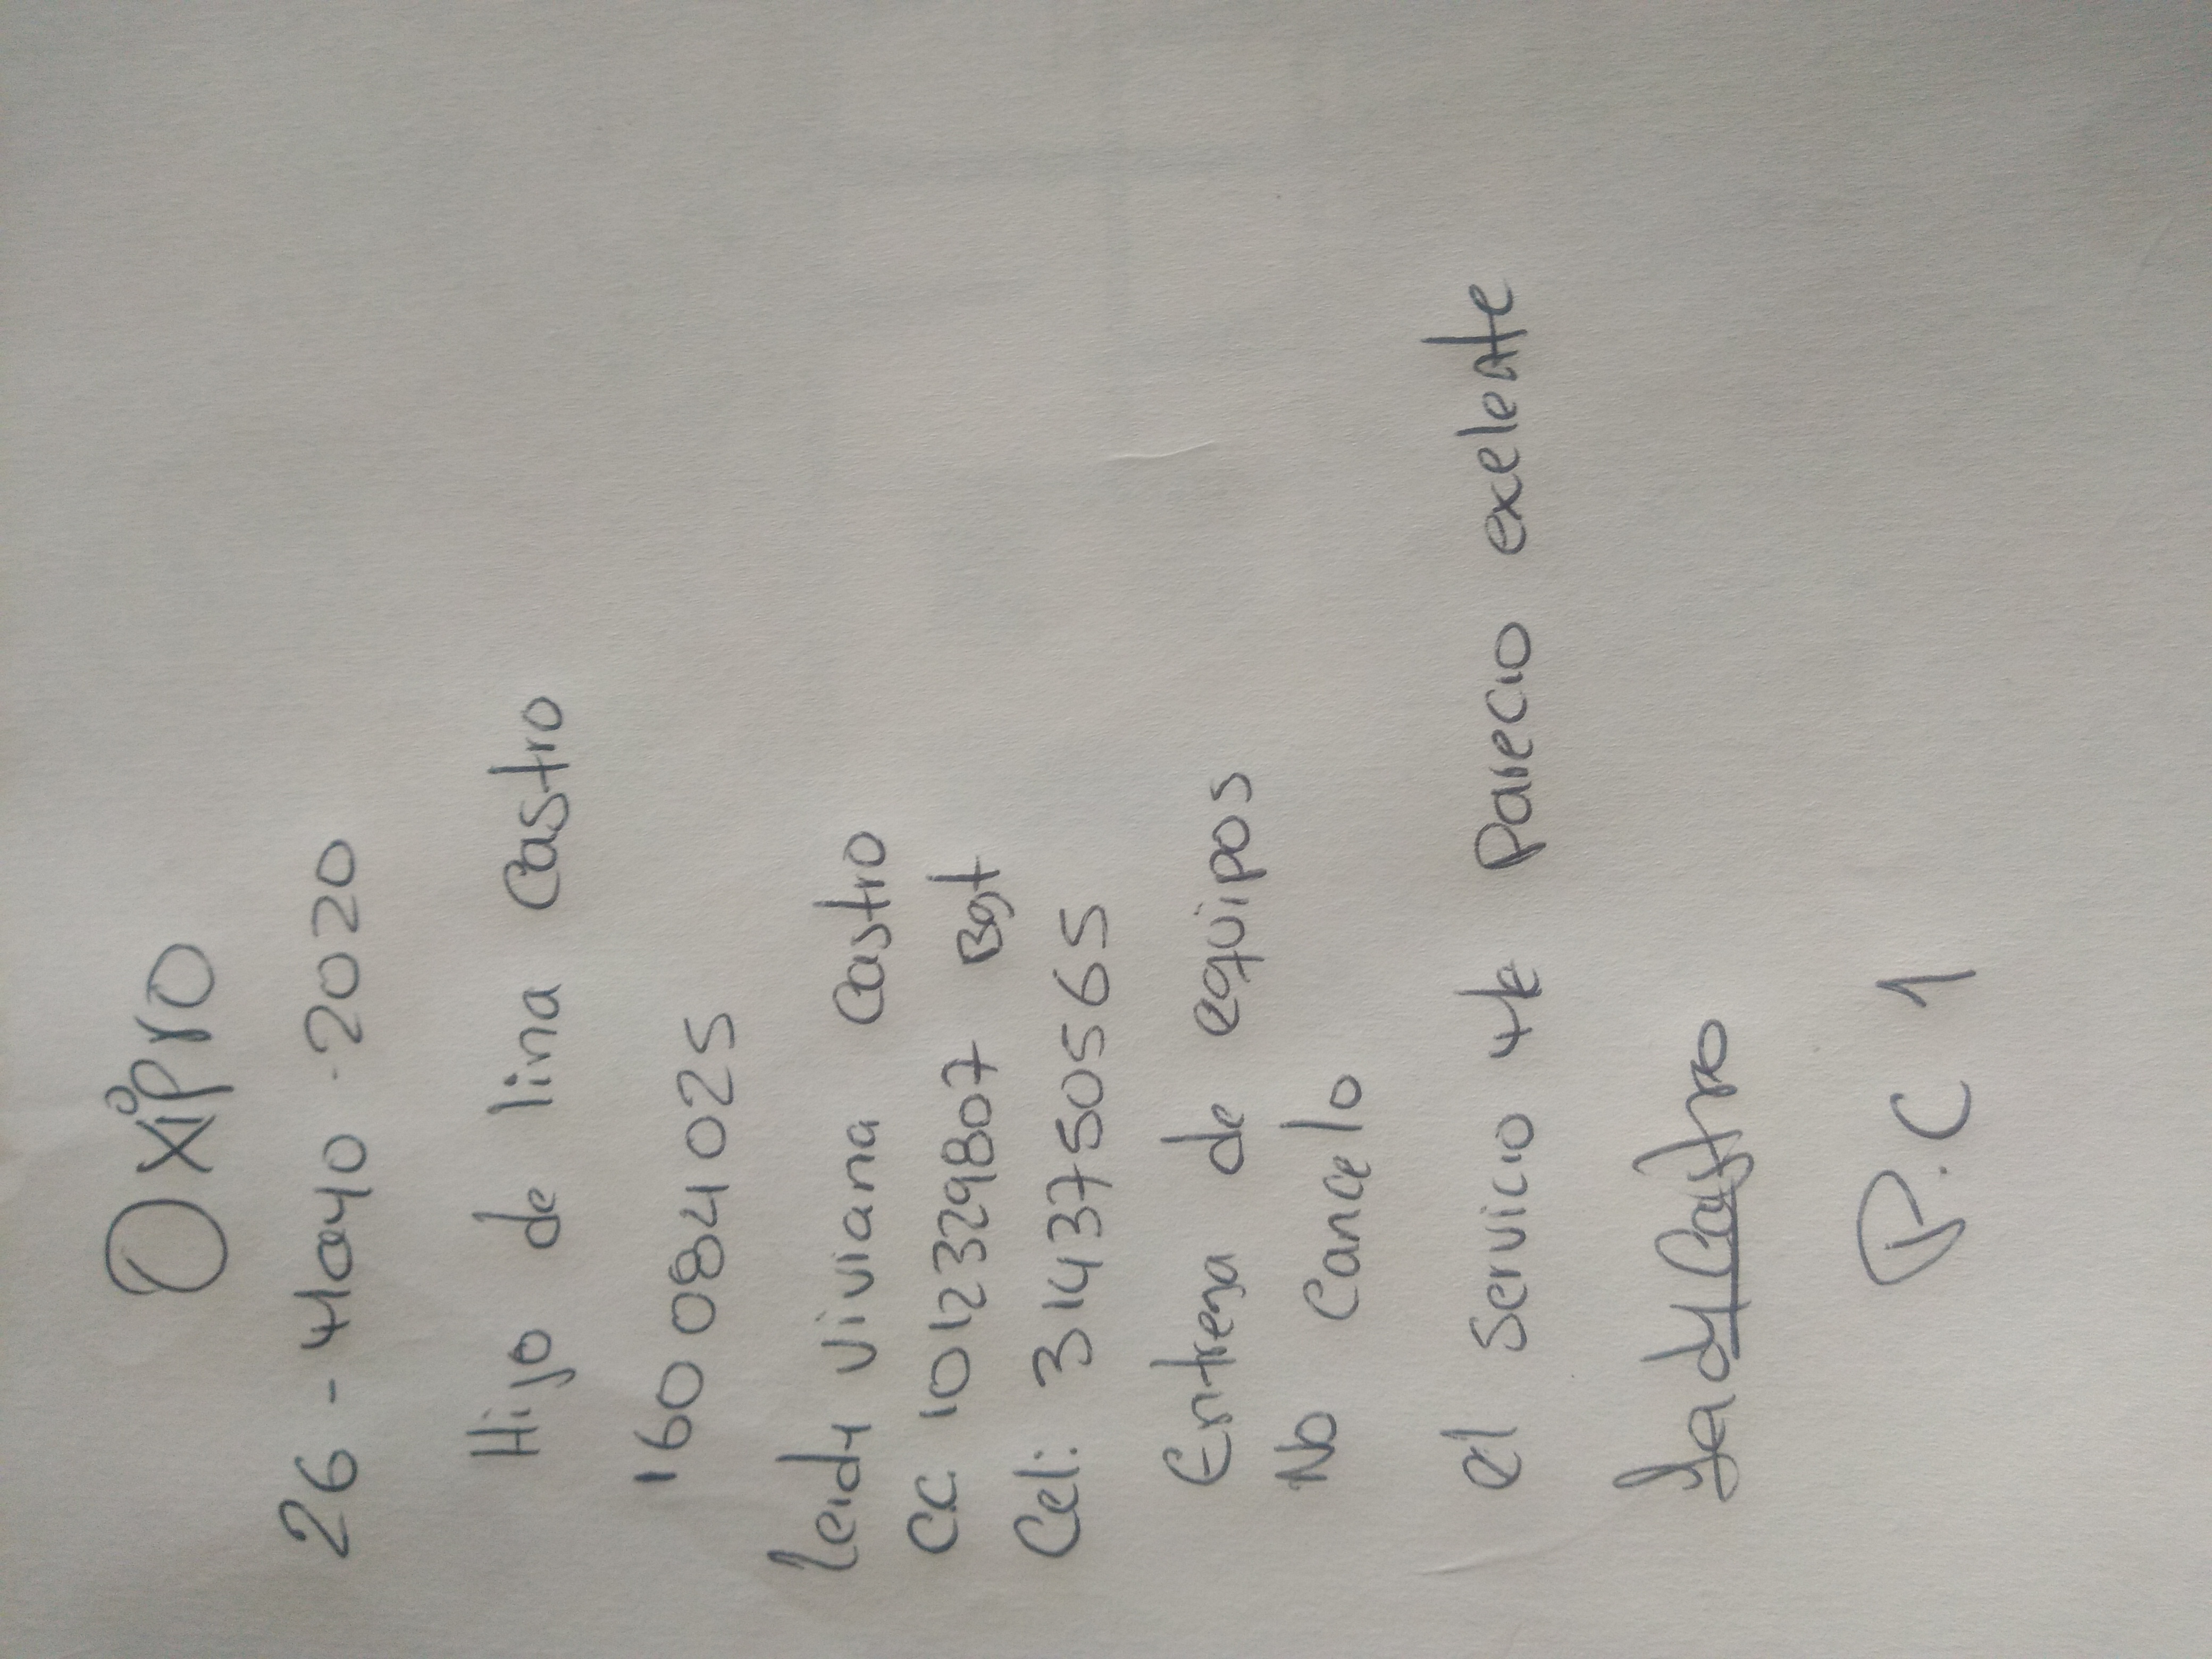 OxiPro
26 - Mayo - 2020
Hijo de lina Castro
160084025
Leidy Viviana Castro
CC 1012329807 Bgt
Cel: 3143750565
Entrega de equipos
No Cancelo
el servicio Me Parecio exelente
Leidy Castro
P.C 1